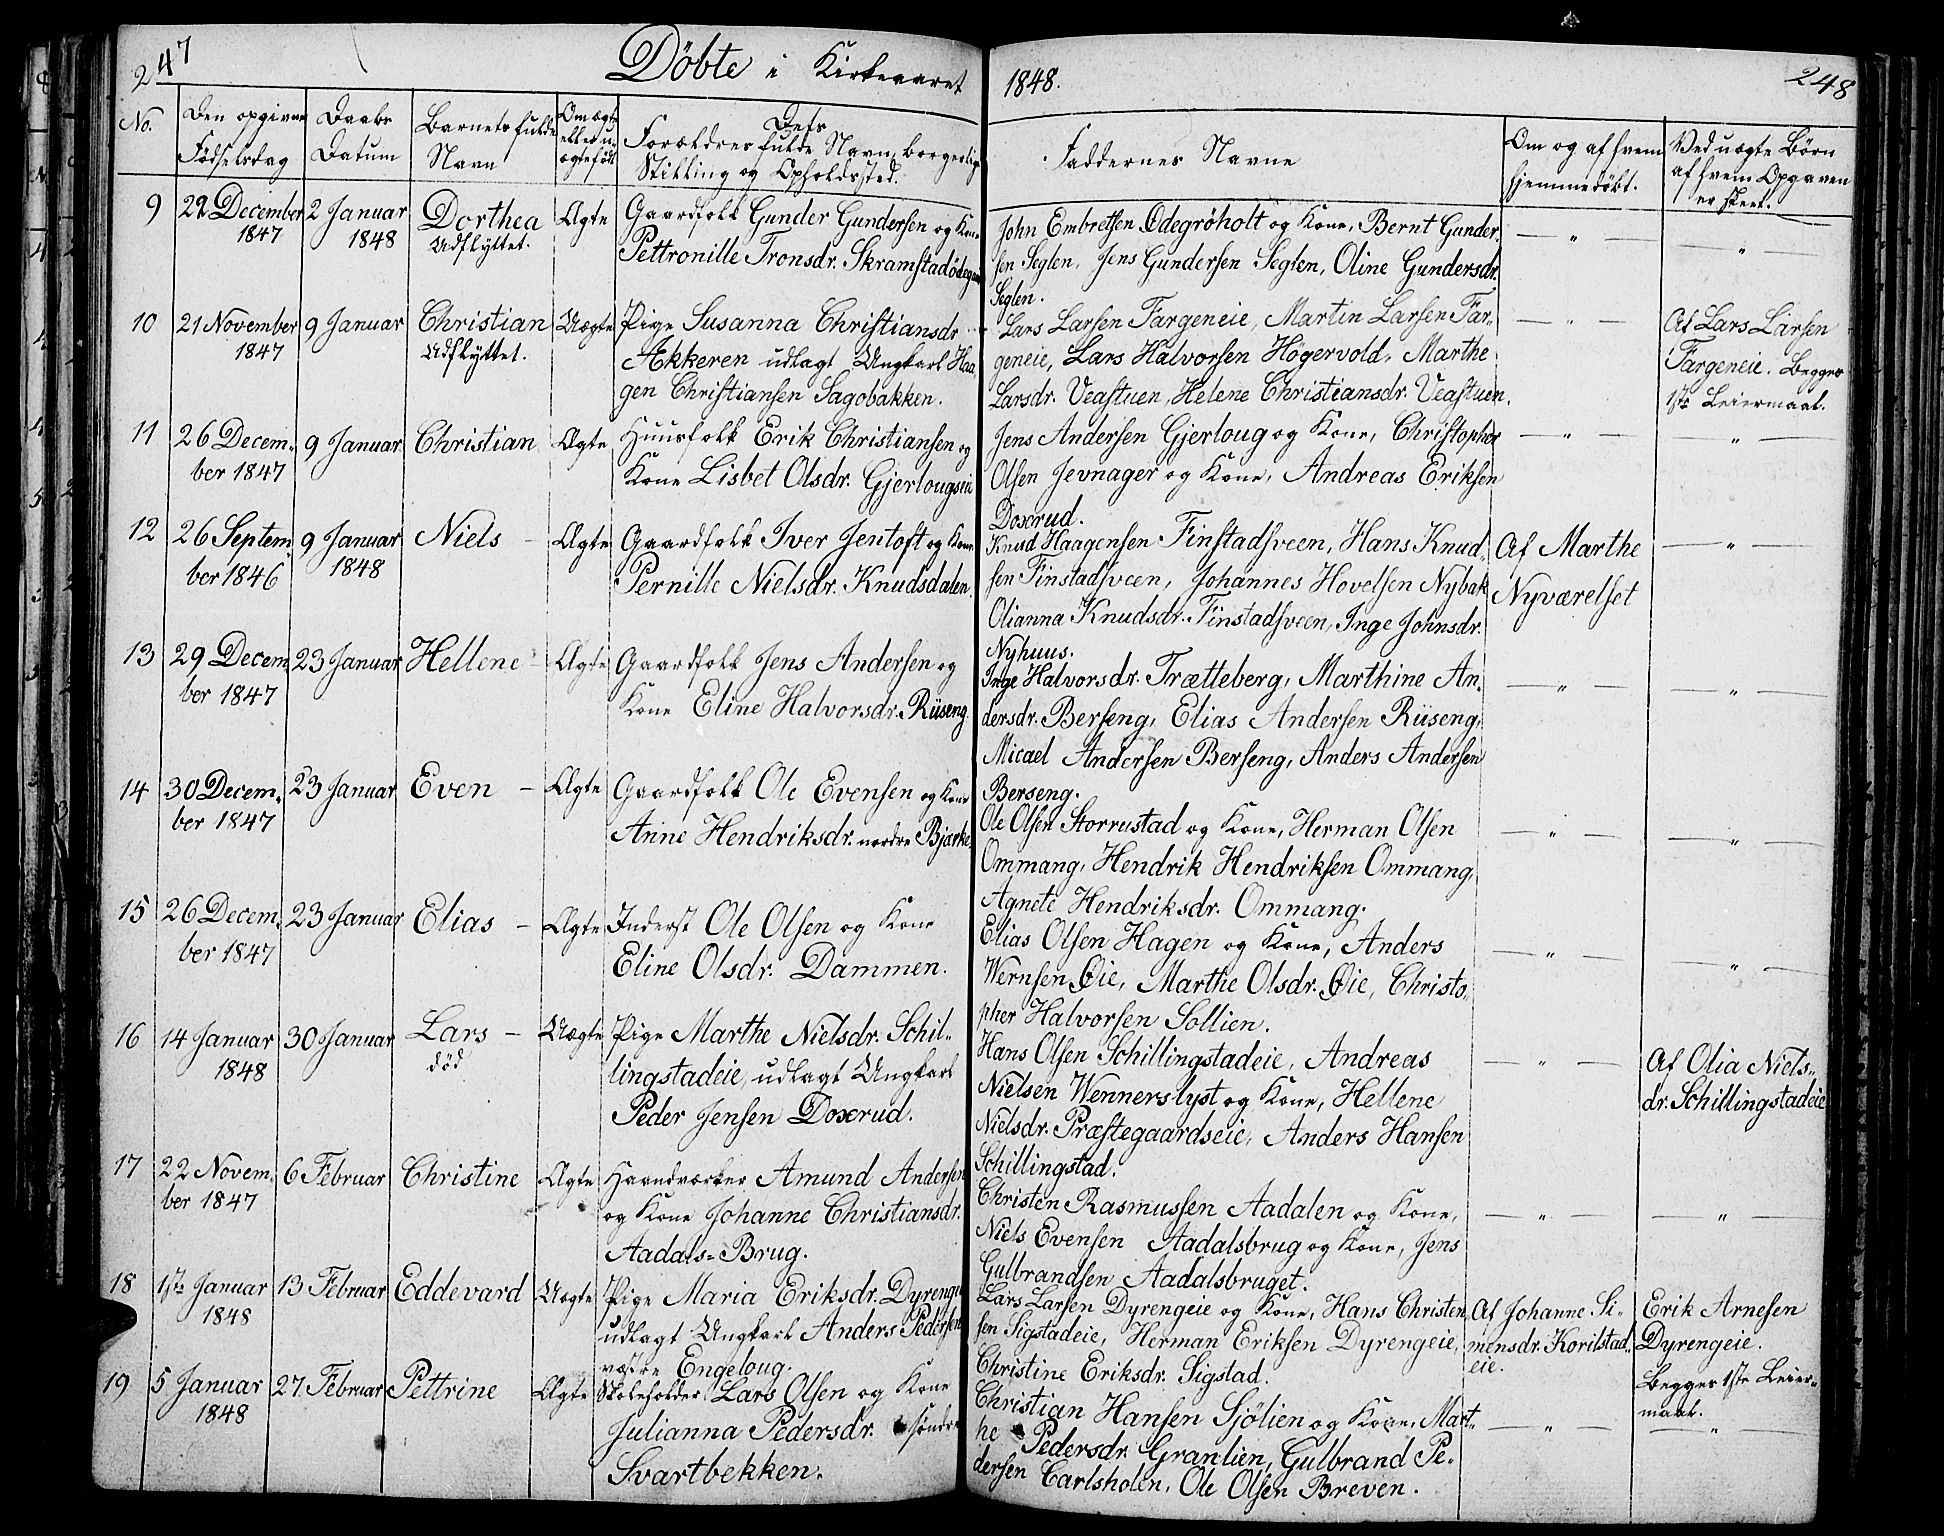 247
Döbte i Kirkeaaret
1848.
248
No.
Den opgivne Fødselsdag
Daabs Datum
Barnets fulde Navn
Om ægte eller uægtefödt
Dets Forældres fulde Navn, borgerlige Stilling og Opholdssted.
Faddernes Navne
Om og af hvem hjemmedöbt.
Ved uægte Börn af hvem Opgaven er skeet.
9
22 December
1847
2 Januar
1848
Dorthea
Udflyttet.
Ægte
Gaardfolk Gunder Gundersen og Kone
Pettronille Tronsdr. Skramstadödegaard
John Embretsen Ödegröholt og Kone, Bernt Gunder-
sen Seglen, Jens Gundersen Seglen, Oline Gundersdr.
Seglen.
— " —
— " —
10
21 November
1847
9 Januar
Christian
Udflyttet.
Uægte
Pige Susanna Christiansdr.
Akkeren udlagt Ungkarl Haa-
gen Christiansen Sagobakken.
Lars Larsen Fargeneie, Martin Larsen Far-
geneie, Lars Halvorsen Högervold, Marthe
Larsdr. Veastuen, Helene Christiansdr. Veastuen.
— " —
Af Lars Larsen
Fargeneie. Begges
1ste Leiermaal.
11
26 Decem-
ber 1847
9 Januar
Christian
Ægte
Huusfolk Erik Christiansen og
Kone Lisbet Olsdr. Gjerlougseie
Jens Andersen Gjerloug og Kone, Christopher
Olsen Jevnager og Kone, Andreas Eriksen
Doxrud.
— " —
— " —
12
26 Septem-
ber 1846
9 Januar
1848
Niels
Ægte
Gaardfolk Iver Jentoft og Kone
Pernille Nielsdr. Knudsdalen.
Knud Haagensen Finstadsveen, Hans Knud-
sen Finstadsveen, Johannes Hovelsen Nybak
Olianna Knudsdr. Finstadsveen, Inge Johnsdr.
Nyhuus.
Af Marthe
Nyværelset
— " —
13
29 Decem-
ber 1847
23 Januar
Hellene
Ægte
Gaardfolk Jens Andersen og
Kone Eline Halvorsdr. Rüseng.
Inge Halvorsdr. Trætteberg, Marthine An-
dersdr. Berseng, Elias Andersen Rüseng,
Micael Andersen Berseng, Anders Andersen
Berseng.
— " —
— " —
14
30 Decem-
ber 1847
23 Januar
Even
Ægte
Gaardfolk Ole Evensen og Kone
Anne Hendriksdr. nordre Bjørke.
Ole Olsen Storrustad og Kone, Herman Olsen
Ommang, Hendrik Hendriksen Ommang,
Agnete Hendriksdr. Ommang.
— " —
— " —
15
26 Decem-
ber 1847
23 Januar
Elias
Ægte
Inderst Ole Olsen og Kone
Eline Olsdr. Dammen.
Elias Olsen Hagen og Kone, Anders
Wernsen Öie, Marthe Olsdr. Öie, Christo-
pher Halvorsen Sollien.
— " —
— " —
16
14 Januar
1848
30 Januar
Lars
död
Uægte
Pige Marthe Nielsdr. Schil-
lingstadeie, udlagt Ungkarl
Peder Jensen Doxrud.
Hans Olsen Schillingstadeie, Andreas
Nielsen Wennerslyst og Kone, Hellene
Nielsdr. Præstegaardseie, Anders Hansen
Schillingstad.
— " —
Af Olia Niels-
dr. Schillingstadeie
17
22 Novem-
ber 1847
6 Februar
Christine
Ægte
Haandværker Amund Andersen
og Kone Johanne Christiansdr.
Aadals-Brug.
Christen Rasmussen Aadalen og Kone,
Niels Evensen Aadalsbrug og Kone, Jens
Gulbrandsen Aadalsbruget.
— " —
— " —
18
1ste Januar
1848
13 Februar
Eddevard
Uægte
Pige Maria Eriksdr. Dyrengeie
udlagt Ungkarl Anders Pedersen
vestre Engeloug.
Lars Larsen Dyrengeie og Kone, Hans Christen-
sen Sigstadeie, Herman Eriksen Dyrengeie,
Christine Eriksdr. Sigstad.
Af Johanne Si-
mensdr. Korilstad-
eie.
Erik Arnesen
Dyrengeie.
Begges 1ste Leier-
maal.
19
5 Januar
1848
27 Februar
Pettrine
Ægte
Skoleholder Lars Olsen og Kone
Julianna Pedersdr. söndre
Svartbekken.
Christian Hansen Sjölien og Kone, Mart-
he Pedersdr. Granlien, Gulbrand Pe-
dersen Carlsholen, Ole Olsen Breven.
— " —
— " —